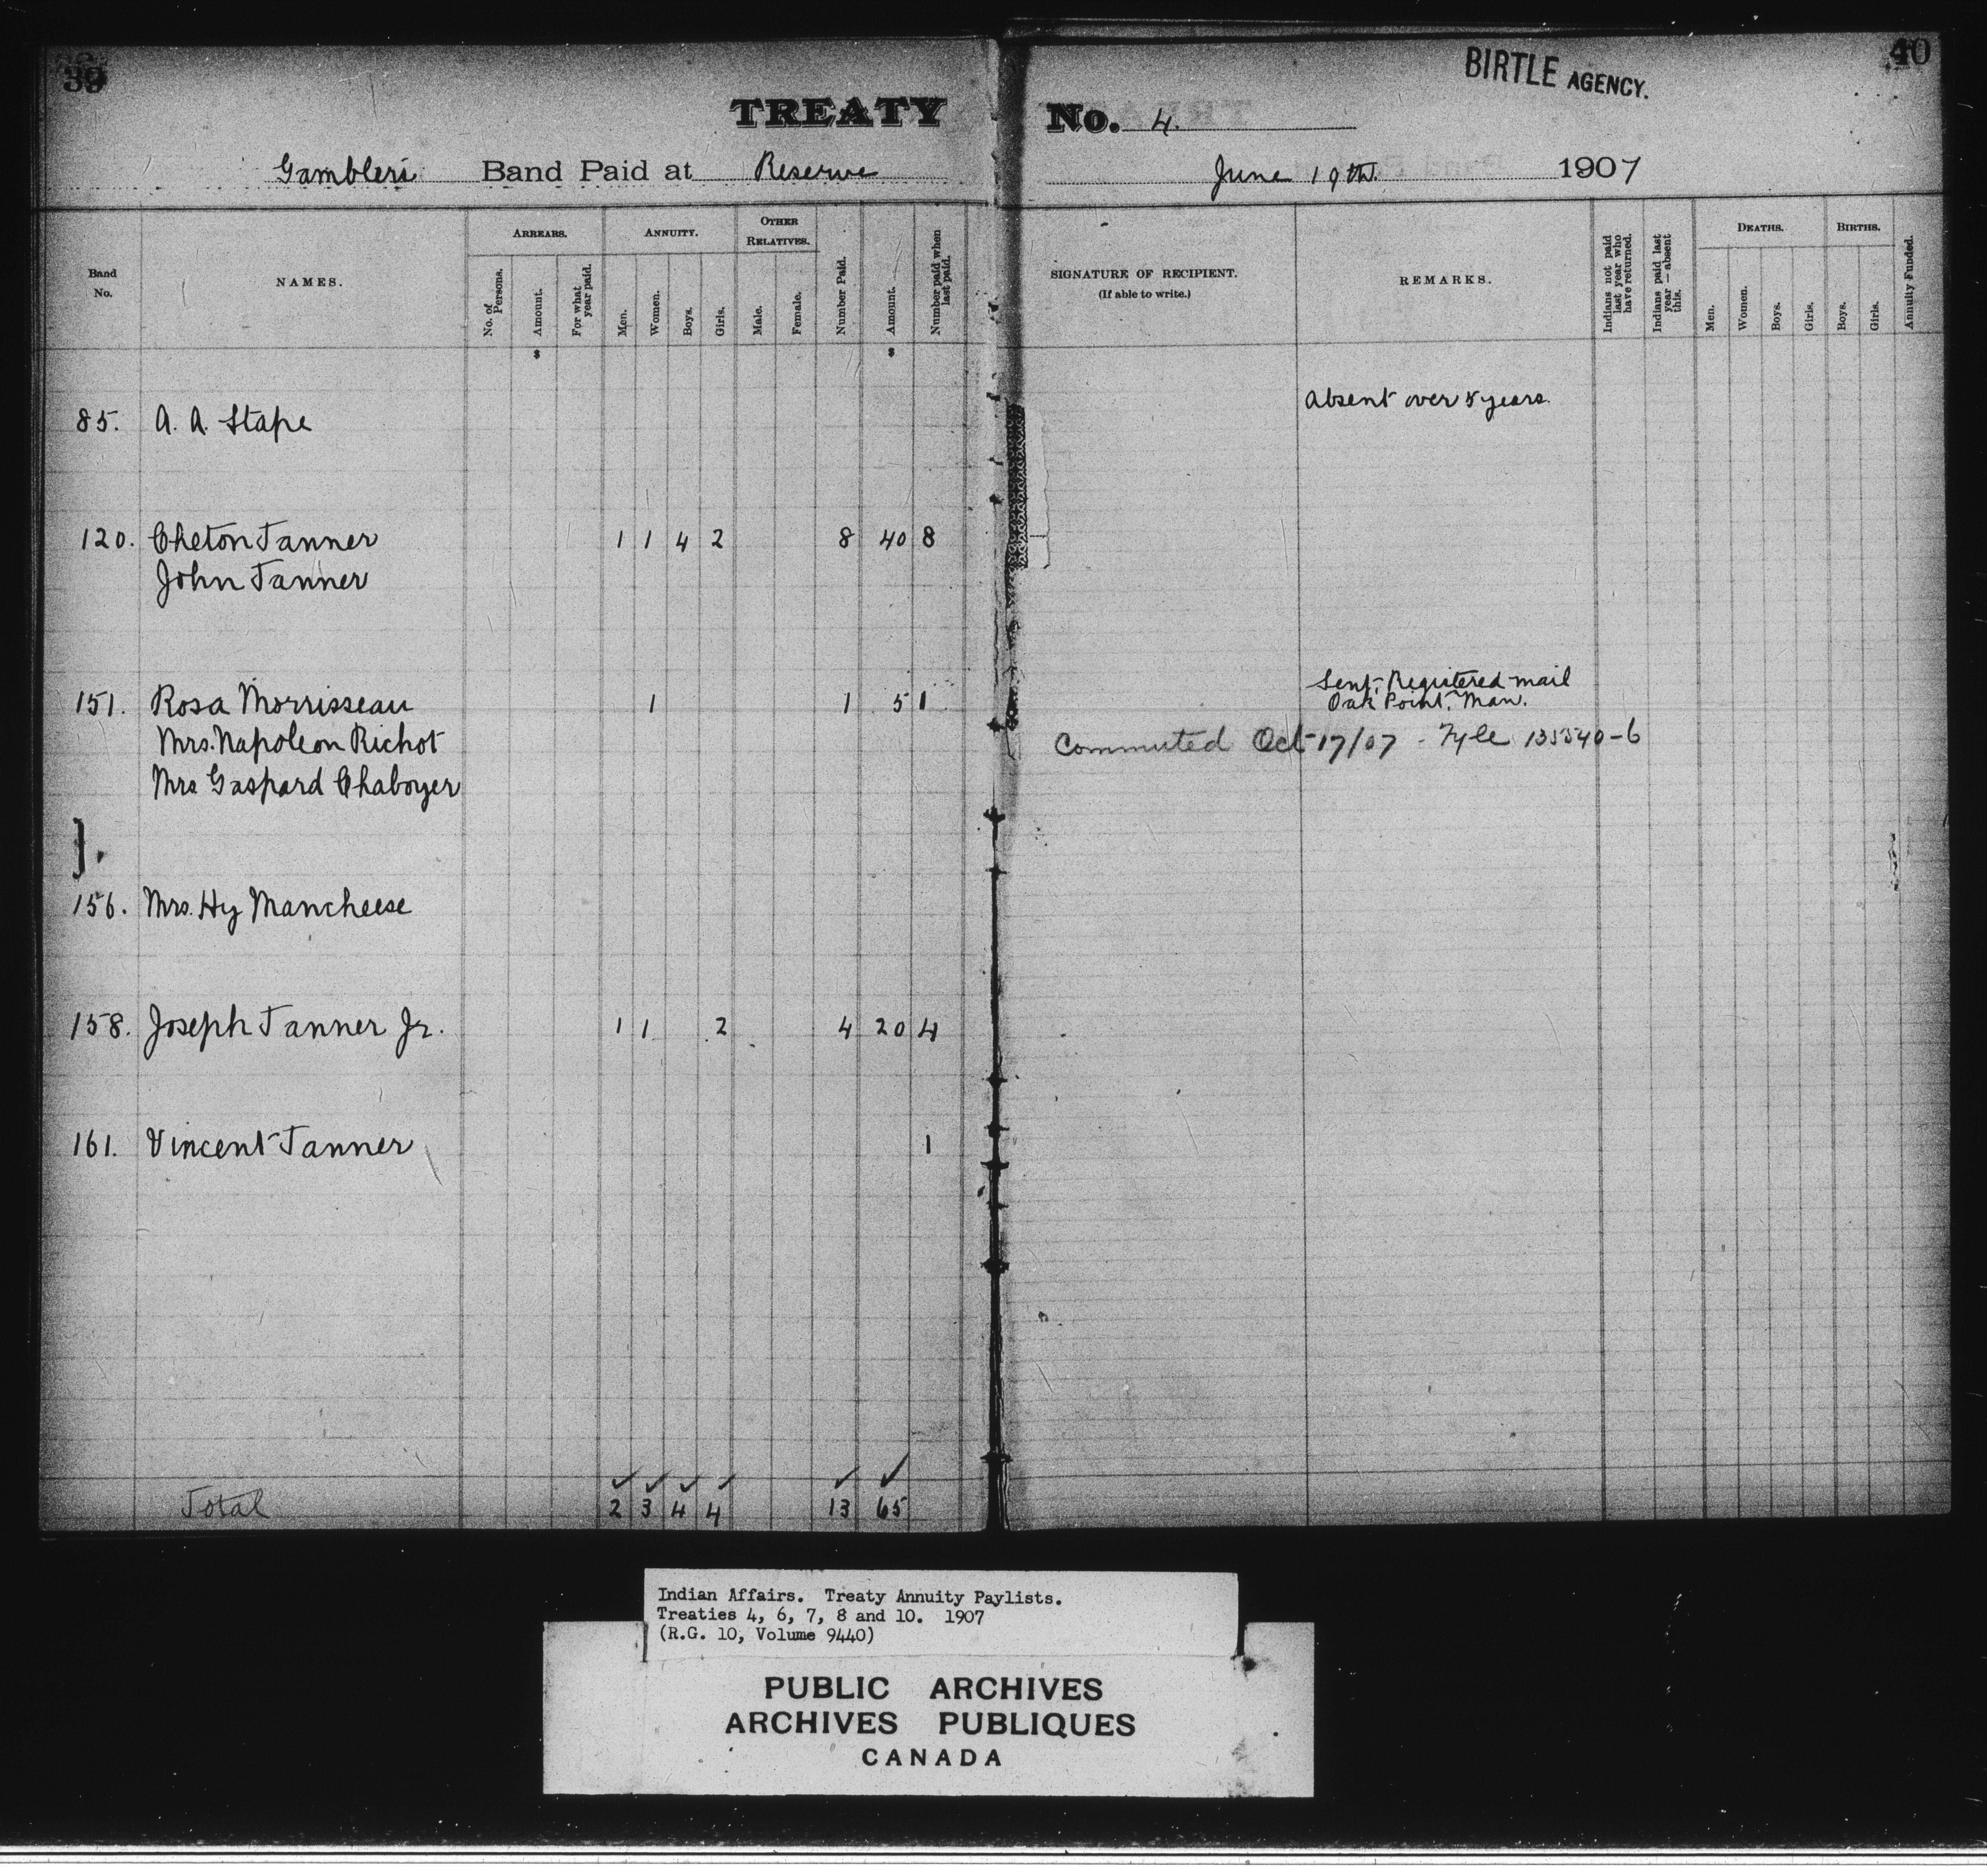 39
40
BIRTLE AGENCY.
TREATY No. 4.
Gamblers Band Paid at Reserve June 19th. 1907
Band No.
NAMES.
ARREARS.
No. of Persons.
Amount.
For what year paid.
ANNUITY.
Men.
Women.
Boys.
Girls.
OTHER RELATIVES.
Male.
Female.
Number Paid.
Amount.
Number paid when last paid.
SIGNATURE OF RECIPIENT.
(If able to write.)
REMARKS.
Indians not paid last year who have returned.
Indians paid last year — absent this.
DEATHS.
Men.
Women.
Boys.
Girls.
BIRTHS.
Boys.
Girls.
Annuity Funded.
$ $
85. A. A. Stape Absent over 5 years.
120. Cheton Tanner 1 1 4 2 8 40 8
John Tanner
151. Rosa Morrisseau 1 1 5 1 Sent Registered mail
Oak Point, Man.
Mrs. Napoleon Richot Commuted Oct 17/07 - Fyle 135540-6
Mrs Gaspard Chaboyer
156. Mrs. Hy Mancheese
158. Joseph Tanner Jr. 1 1 2 4 20 4
161. Vincent Tanner 1
Total 2 3 4 4 13 65
Indian Affairs. Treaty Annuity Paylists.
Treaties 4, 6, 7, 8 and 10. 1907
(R.G. 10, Volume 9440)
PUBLIC ARCHIVES
ARCHIVES PUBLIQUES
CANADA